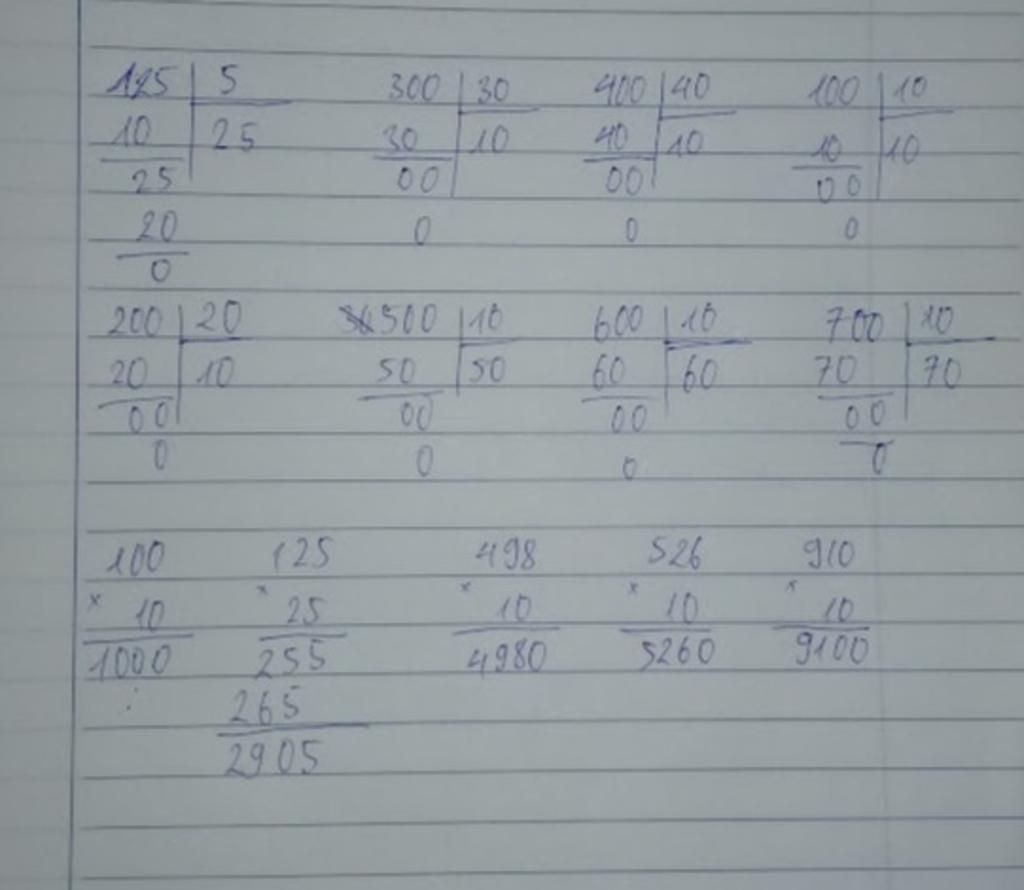 125 5 300 30 400 40 100 10
10 25 30 10 40 10 10 10
25 00 00 00
20 0 0 0
0
200 20 500 10 600 10 700 10
20 10 50 50 60 60 70 70
00 00 00 00
0 0 0 0
100 125 498 526 910
x 10 x 25 x 10 x 10 x 10
1000 255 4980 5260 9100
265
2905